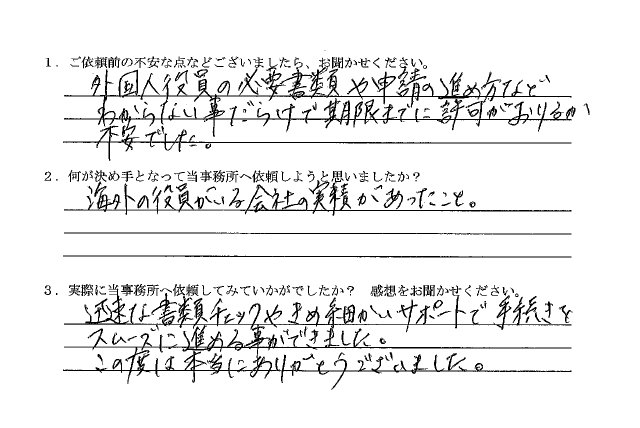 1．ご依頼前の不安な点などございましたら、お聞かせください。
外国人役員の必要書類や申請の進め方など
わからない事だらけで期限までに許可がおりるか
不安でした。
2．何が決め手となって当事務所へ依頼しようと思いましたか？
海外の役員がいる会社の実績があったこと。
3．実際に当事務所へ依頼してみていかがでしたか？　感想をお聞かせください。
迅速な書類チェックやきめ細かいサポートで手続きを
スムーズに進める事ができました。
この度は本当にありがとうございました。